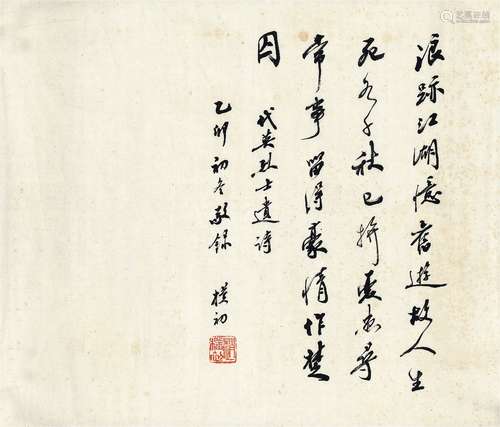 浪跡江湖憶舊遊故人生
死各千秋已拚憂患尋
常事留得豪情作楚
囚
代英烈士遺詩
乙卯初冬敬録
樸初